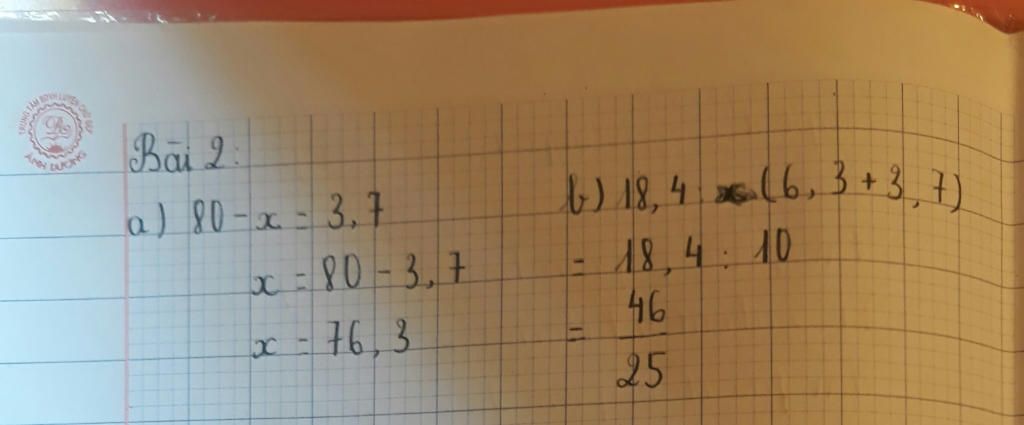 TRUNG TÂM RÈN LUYỆN CHỮ ĐẸP
ÁNH DƯƠNG
Bài 2:
a) 80 - x = 3,7
x = 80 - 3,7
x = 76,3
b) 18,4 : (6,3 + 3,7)
= 18,4 : 10
= 46/25